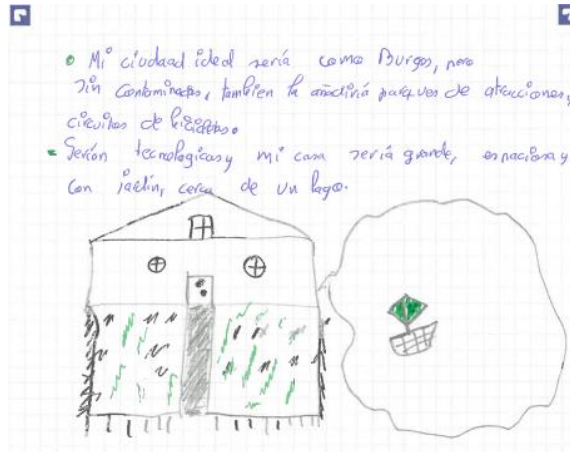 Mi ciudad ideal sería como Burgos, pero
sin contaminación, tambien la añadiria parques de atracciones,
circuitos de bicicletas.
Serían tecnologicas y mi casa sería grande, espaciosa y
con jardín, cerca de un lago.